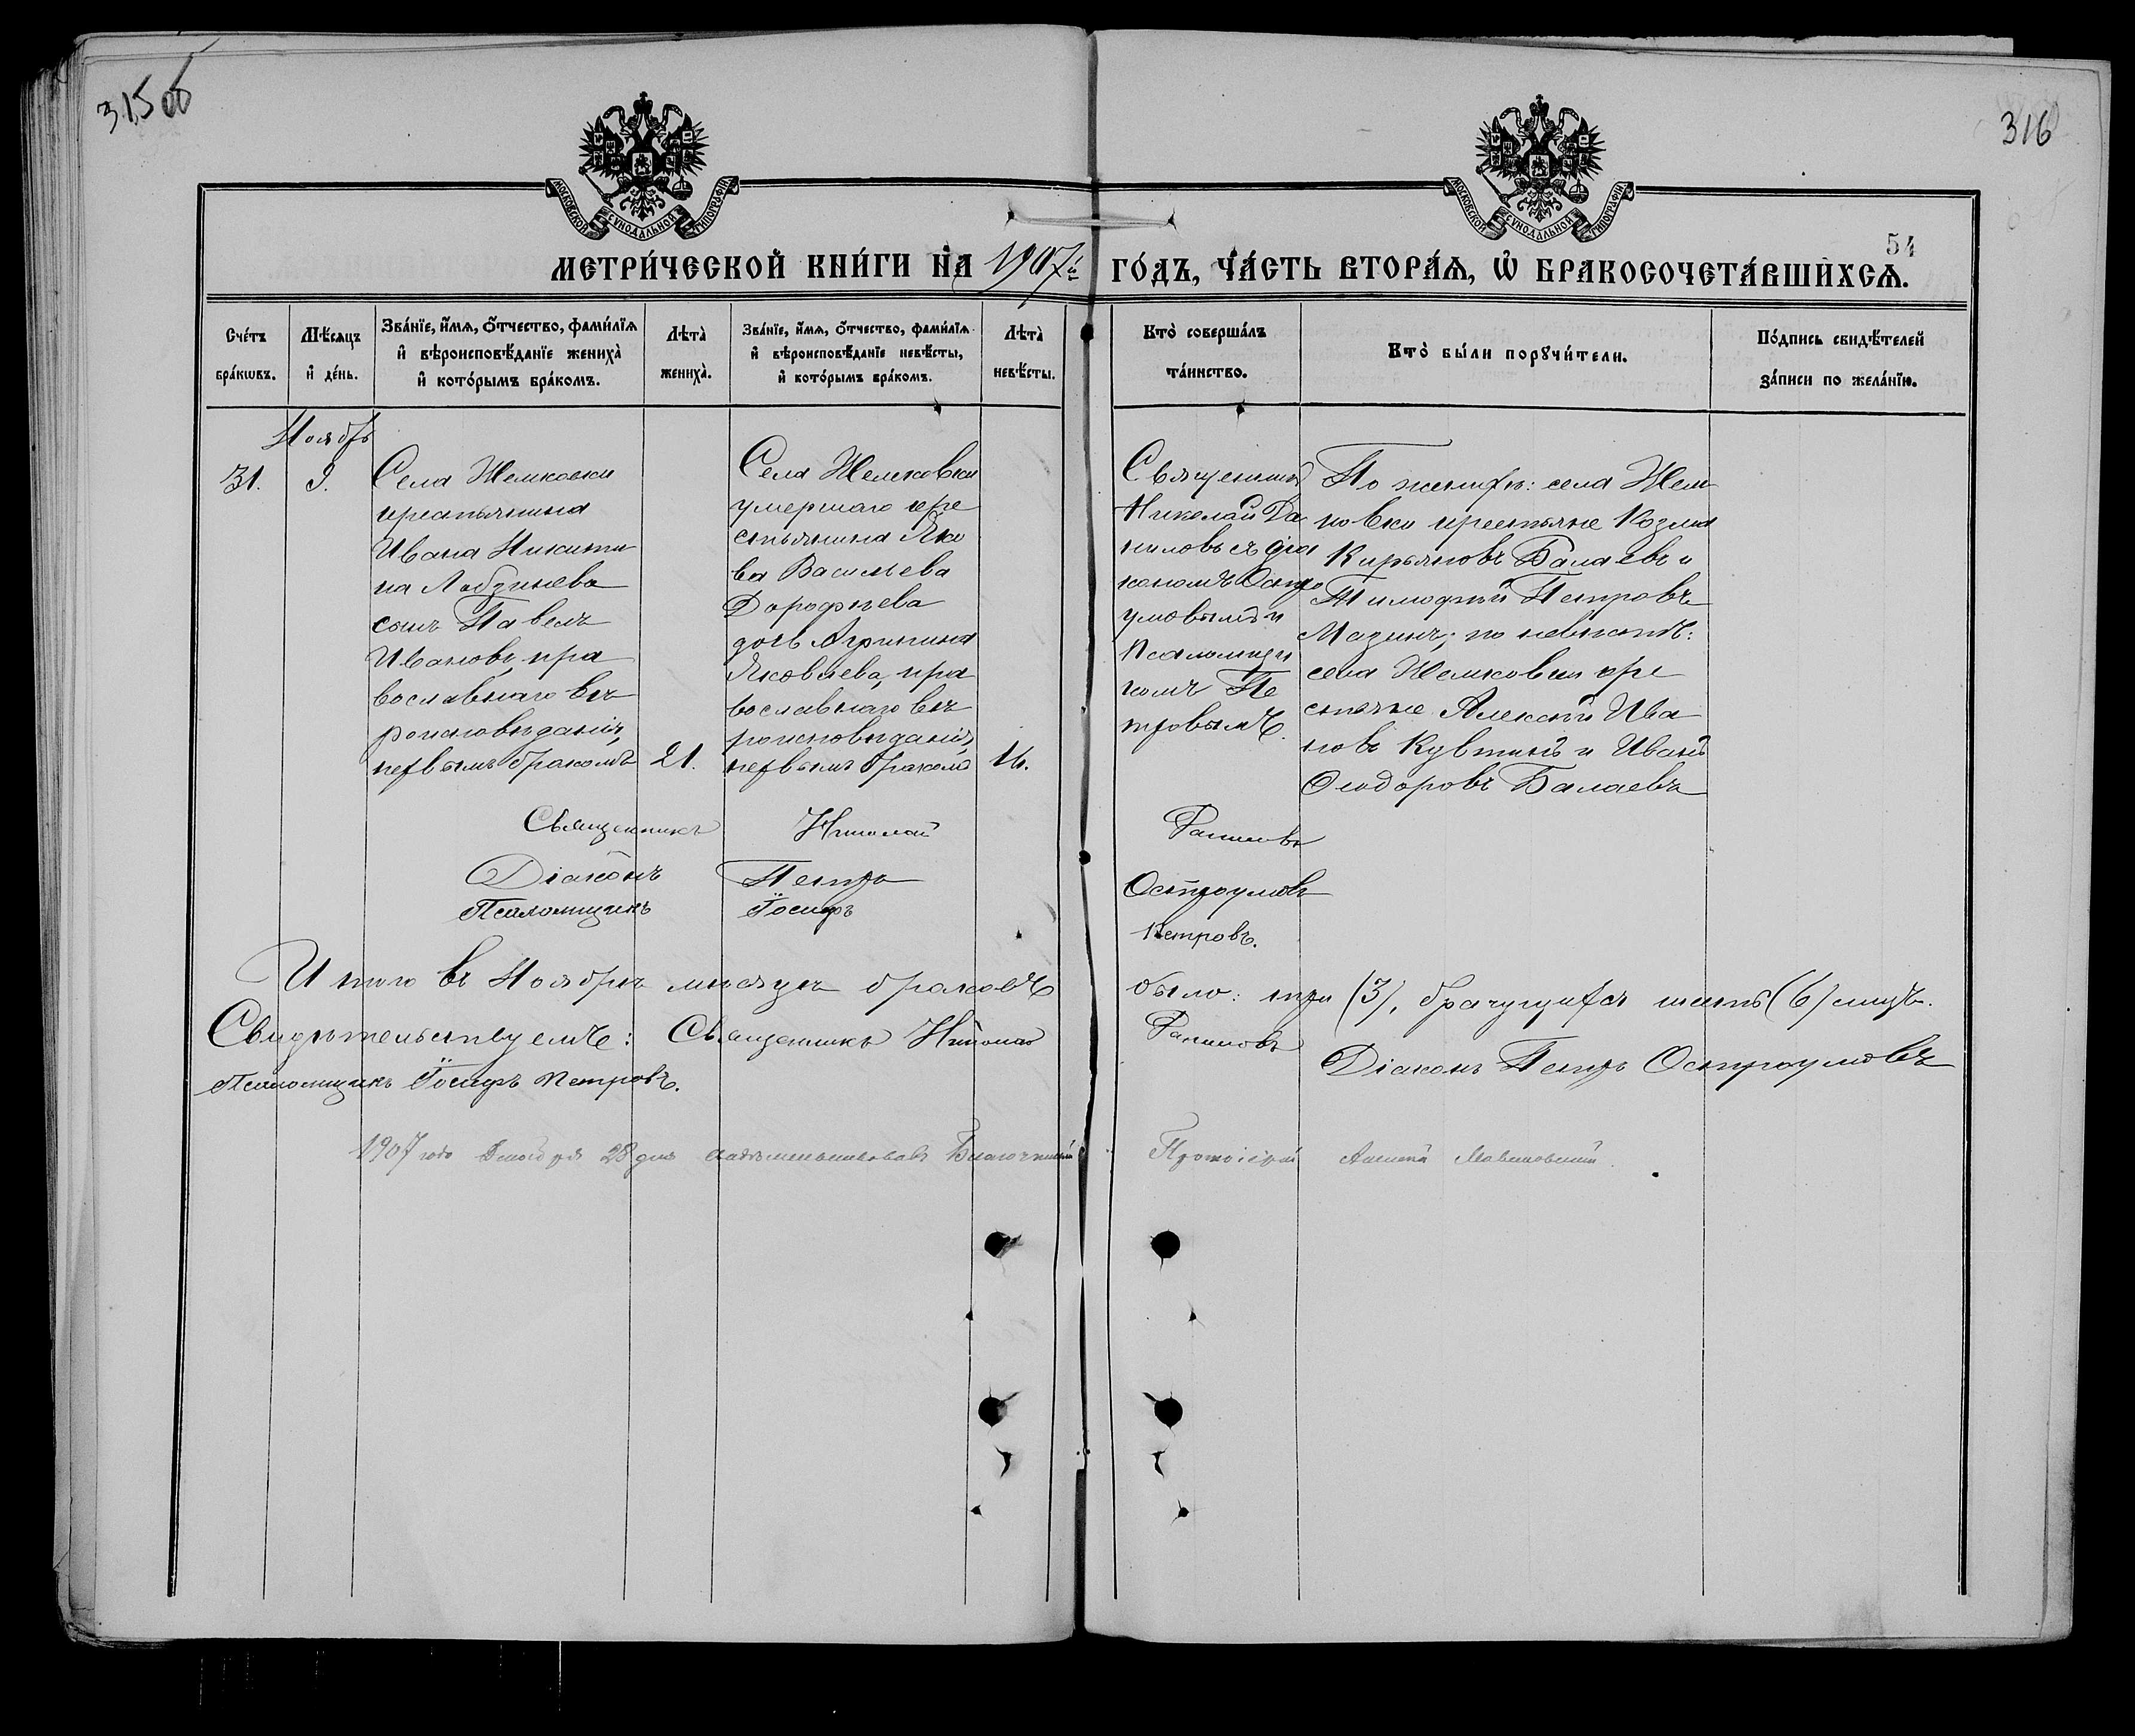 315 об
316
МОСКОВСКОЙ СУНОДАЛЬНОЙ ТИПОГРАФІИ
МОСКОВСКОЙ СУНОДАЛЬНОЙ ТИПОГРАФІИ
54
МЕТРИ́ЧЕСКОЙ КНИ́ГИ НА 1907й ГО́ДЪ, ЧА́СТЬ ВТОРА́Ѧ, Ѡ БРАКОСОЧЕТА́ВШИХСѦ.
Сче́тъ бра́кѡвъ.
Мѣ́сяцъ и҆ де́нь.
Зва́нїе, и҆́мѧ, ѻ҆́тчество, фами́лїѧ и҆ вѣроисповѣ́данїе жениха̀ и҆ кото́рымъ бра́комъ.
Лѣта̀ жениха̀.
Зва́нїе, и҆́мѧ, ѻ҆́тчество, фами́лїѧ и҆ вѣроисповѣ́данїе невѣ́сты, и҆ кото́рымъ бра́комъ.
Лѣта̀ невѣ́сты.
Кто̀ соверша́лъ та́инство.
Кто̀ бы́ли порꙋчи́тели.
По́дпись свидѣ́телей за́писи по жела́нїю.
Ноябрь
31.
9.
Села Жемковки
крестьянина
Ивана Никити
на Лобзинева
сынъ Павелъ
Ивановъ, пра
вославнаго вѣ
роисповѣданія,
первымъ бракомъ
21.
Села Жемковки
умершаго кре
стьянина Яко
ва Васильева
Дорофѣева
дочь Агрипина
Яковлева, пра
вославнаго вѣ
роисповѣданія,
первымъ бракомъ
16.
Священникъ
Николай Ра
ниловъ съ діа
кономъ Остро
умовымъ и
Псаломщи
комъ Пе
тровымъ.
По женихѣ: села Жем
ковки крестьяне Козма
Кирьяновъ Балаевъ и
Тимофѣй Петровъ
Мазинъ; по невѣстѣ:
села Жемковки кре
стьяне Алексѣй Ива
новъ Кувтинъ и Иванъ
Ѳеодоровъ Балаевъ
Священникъ Николай Раниловъ
Діаконъ Петръ Остроумовъ
Псаломщикъ Іосифъ Петровъ.
Итого въ Ноябрѣ мѣсяцѣ браковъ было: три (3), брачущихся шесть (6) лицъ.
Свидѣтельствуемъ: Священникъ Николай Раниловъ
Діаконъ Петръ Остроумовъ
Псаломщикъ Іосифъ Петровъ.
1907 года Декабря 28 дня свидѣтельствовалъ Благочинный Протоіерей